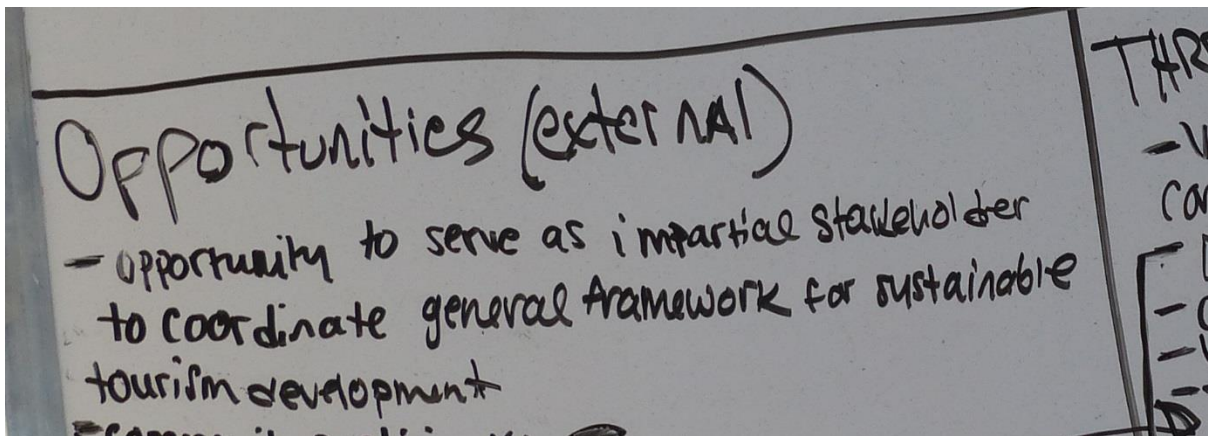 Opportunities (external)
- opportunity to serve as impartial stakeholder
to coordinate general framework for sustainable
tourism development